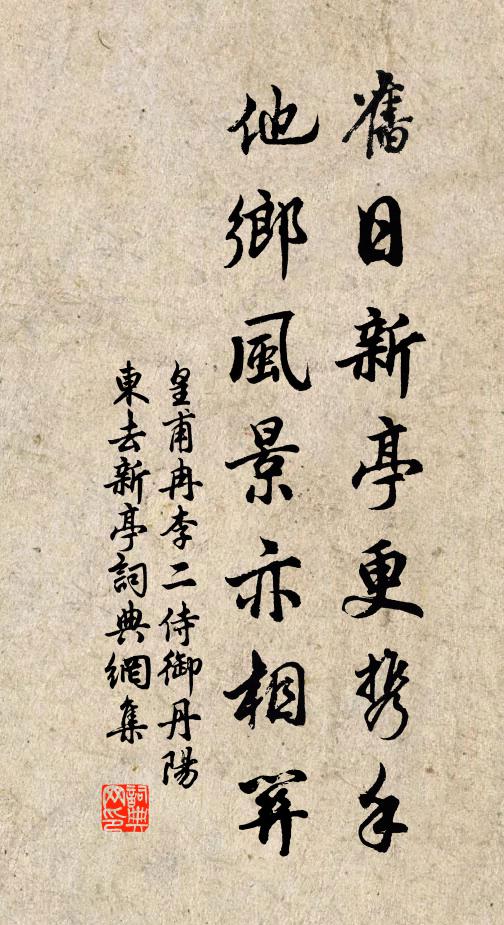 舊日新亭更携手
他鄉風景亦相笄
皇甫冉李二侍御丹陽
東去新亭詞典網集
詞典
网印